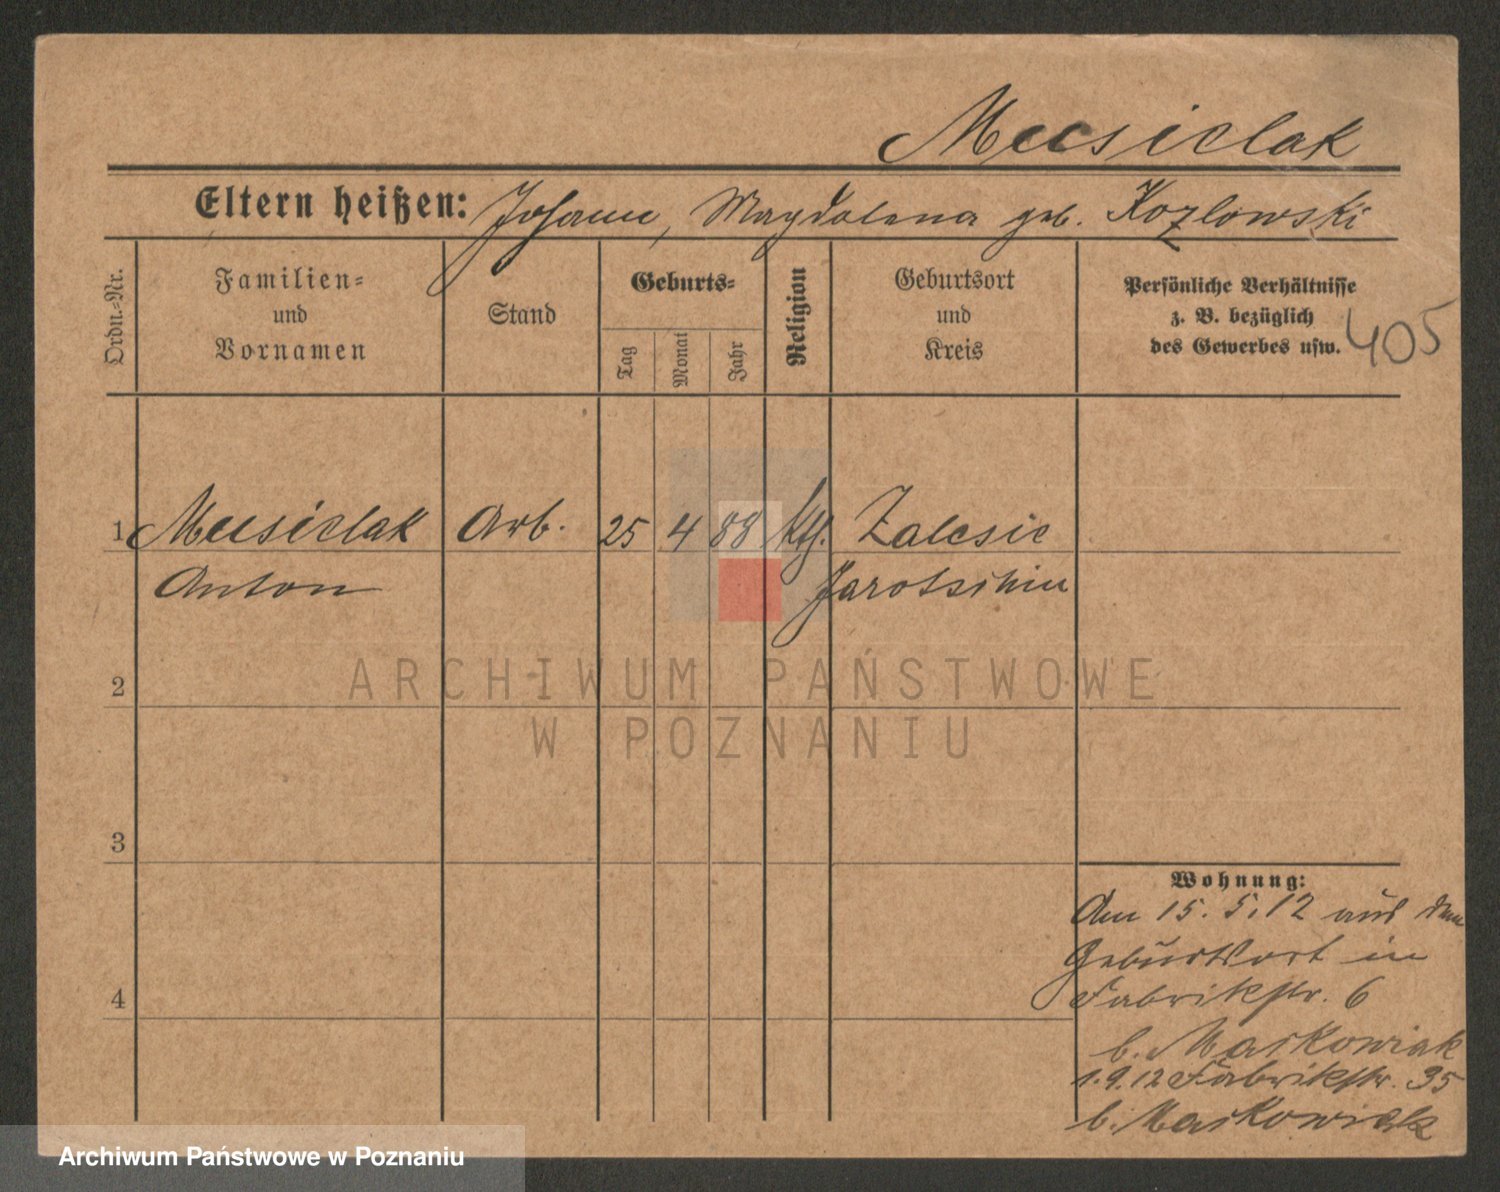 Musielak
Eltern heißen: Johann, Magdalena geb. Kozlowski
Ordn.-Nr.
Familien-
und
Vornamen
Stand
Geburts-
Tag
Monat
Jahr
Religion
Geburtsort
und
Kreis
Persönliche Verhältnisse
z. B. bezüglich
des Gewerbes usw.
405
1 Musielak Arb. 25 4 88 kth. Zalesie
Anton Jarotschin
2
ARCHIWUM PAŃSTWOWE
W POZNANIU
3
Wohnung:
Am 15. 5. 12 aus dem
Geburtsort in
Fabrikstr. 6
4
b. Maskowiak
1.9.12 Fabrikstr. 35
b. Maskowiak
Archiwum Państwowe w Poznaniu